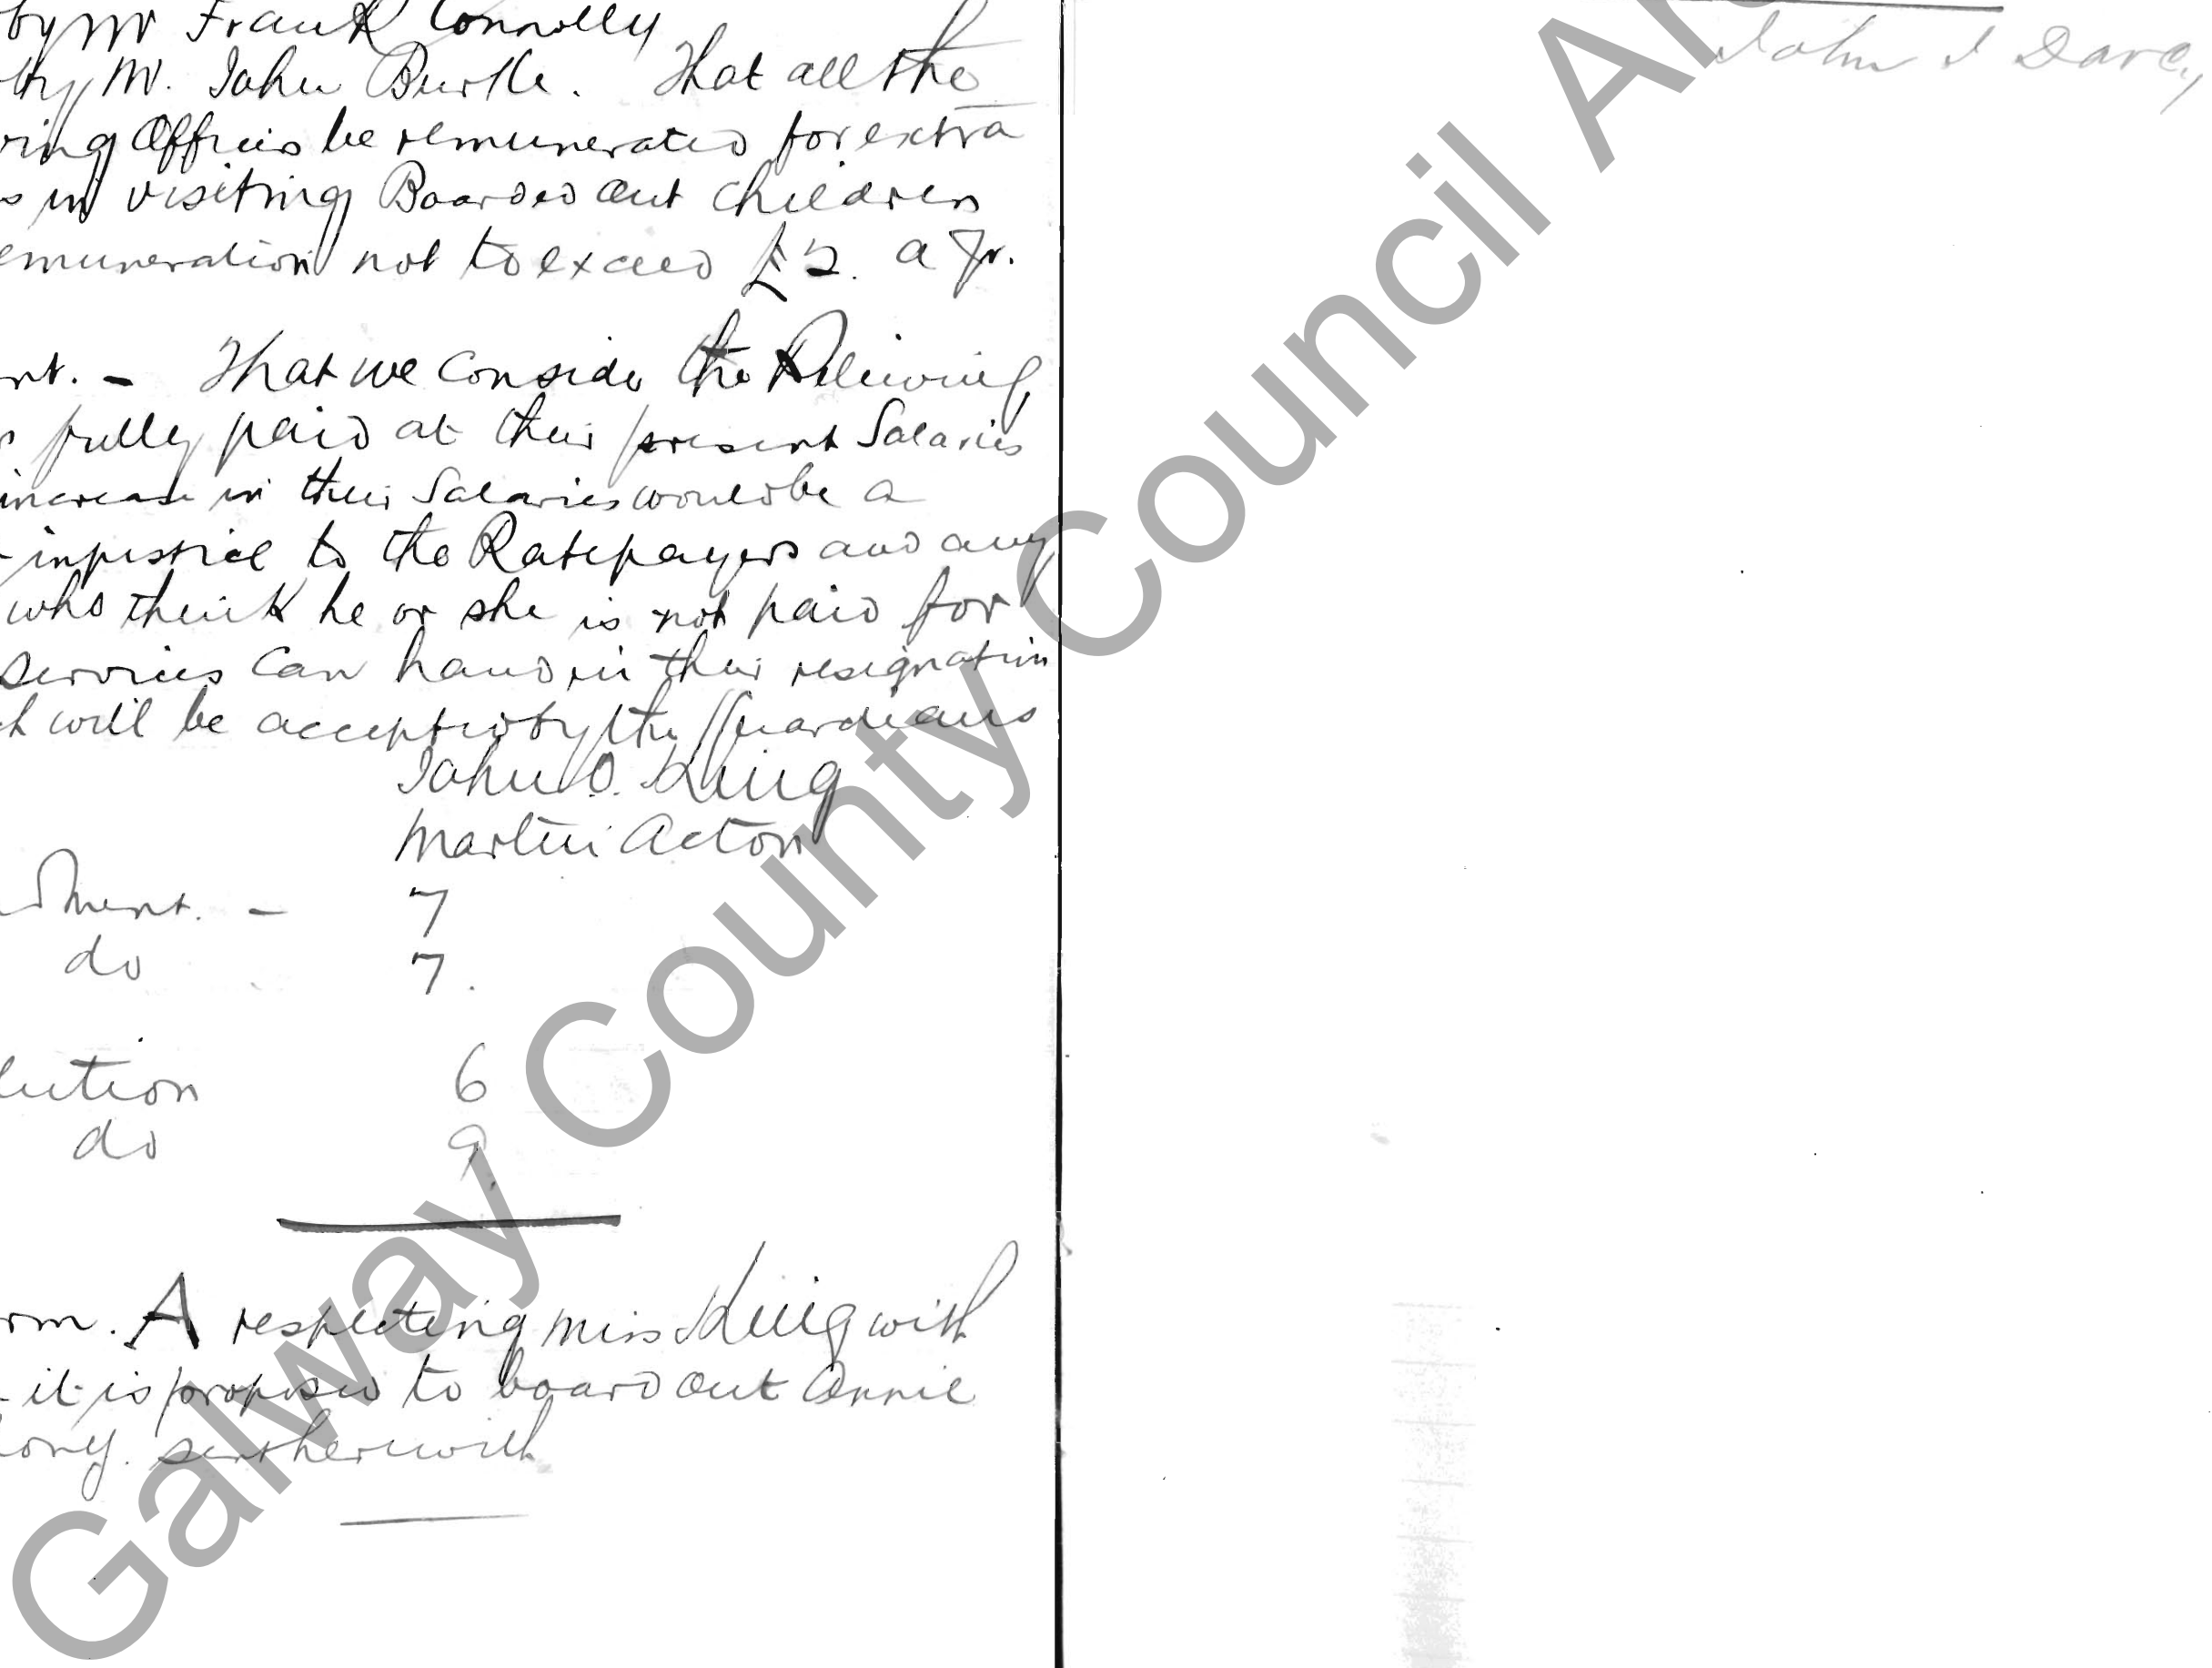 by Mr Frank Connolly
by Mr. John Burke. That all the
ving Officers be remunerated for extra
s in visiting Boarded out children
emuneration not to exceed £5. a Yr.
nt. - That we consider the Relieving
fully paid at their present Salaries
increase in their Salaries would be a
injustice to the Ratepayers and any
who think he or she is not paid for
services can hand in their resignation
h will be accepted by the Guardians
John O. King
Martin Acton
dment. - 7
do 7.
lution 6
do 9
rm. A respecting Miss King with
it is proposed to board out Annie
ony. sent herewith
John J Darcy
Galway County Council Ar